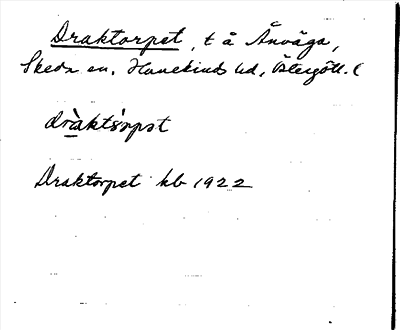 Draktorpet, t å Änväga,
Skeda sn. Hanekinds hd, Östergötl. (
dràktsòrpət
Draktorpet kb 1922